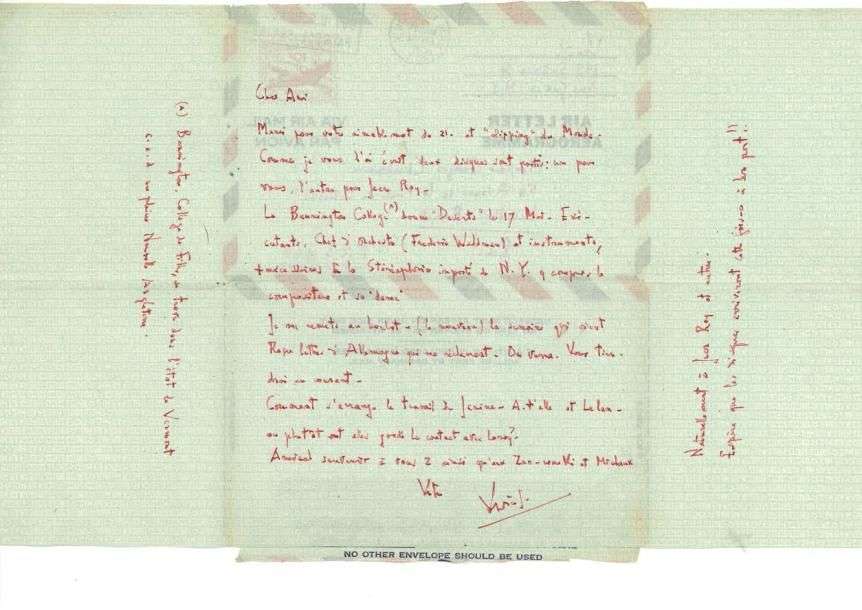 Cher Ami
Merci pour votre aimable mot du 21. et "clipping" du Monde.
Comme je vous l'ai écrit, deux disques sont partis: un pour
vous, l'autre pour Jean Roy-
Le Bennington College (*) donne "Déserts" le 17 Mai- Exé-
cutants, Chef d'Orchestre (Frederic Waldman) et instruments,
+ accessoires & la Stéréophonie importé de N.Y. y compris le
compositeur et sa "dame"
Je me remets au boulot- (le nouveau) la semaine qui vient
Reçu lettre d'Allemagne qui me réclament- On verra. Vous tien-
drai au courant-
Comment s'arrange le travail de Janine- A.t'elle et
ou plutôt ont elles gardé le contact avec
Amical souvenir à tous 2 ainsi qu'aux et Michaux
Votre
(*) Bennington, College de Filles, se trouve dans l'état de Vermont
c.a.d en pleine Nouvelle Angleterre.
Naturellement à Jean Roy et autre.
Espère que les disques arriveront cette fois-ci à bon port!!
VIA AIR MAIL
PAR AVION
AIR LETTER
AEROGRAMME
NO OTHER ENVELOPE SHOULD BE USED